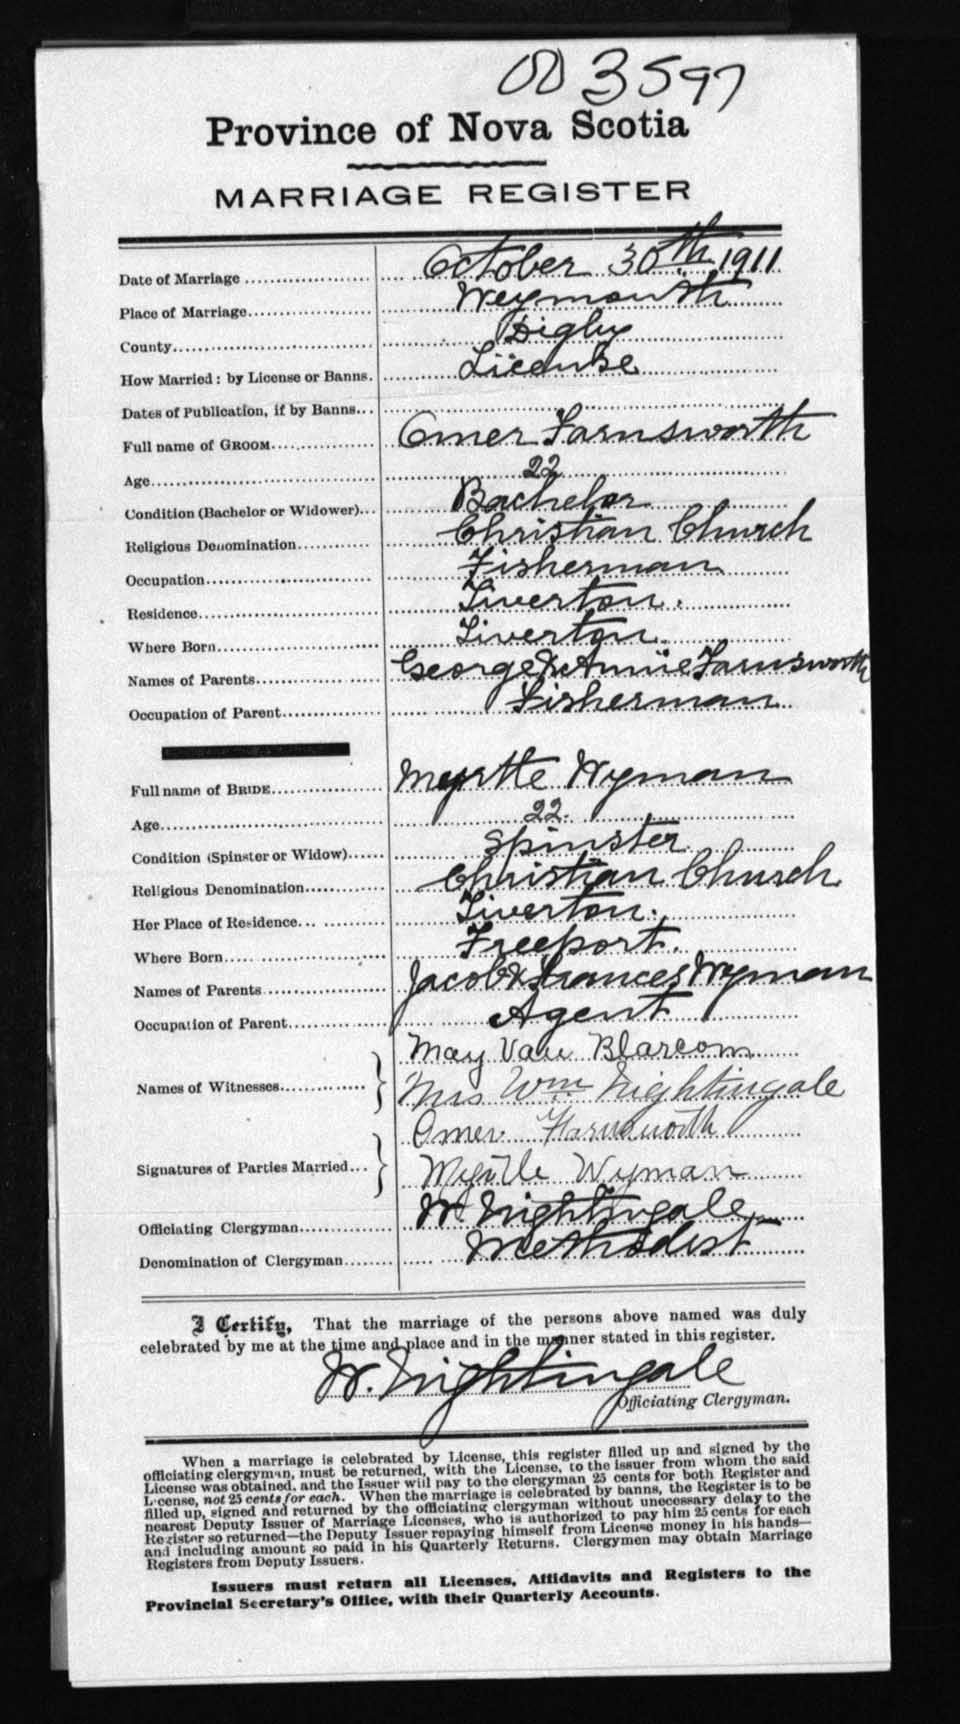 3597
Province of Nova Scotia
MARRIAGE REGISTER
Date of Marriage October 30th 1911
Place of Marriage Weymouth
County Digby
How Married: by License or Banns. License
Dates of Publication, if by Banns
Full name of GROOM Omer Farnsworth
Age 22
Condition (Bachelor or Widower) Bachelor
Religious Denomination Christian Church
Occupation Fisherman
Residence Tiverton.
Where Born Tiverton.
Names of Parents George & Annie Farnsworth
Occupation of Parent Fisherman
Full name of BRIDE Myrtle Wyman
Age 22.
Condition (Spinster or Widow) Spinster
Religious Denomination Christian Church
Her Place of Residence Tiverton.
Where Born Freeport.
Names of Parents Jacob & Frances Wyman
Occupation of Parent Agent
May Van Blarcom
Names of Witnesses Mrs Wm. Nightingale
Omer Farnsworth
Signatures of Parties Married Myrtle Wyman
Officiating Clergyman W. Nightingale
Denomination of Clergyman Methodist
I Certify, That the marriage of the persons above named was duly
celebrated by me at the time and place and in the manner stated in this register.
W. Nightingale
Officiating Clergyman.
When a marriage is celebrated by License, this register filled up and signed by the
officiating clergyman, must be returned, with the License, to the issuer from whom the said
License was obtained, and the Issuer will pay to the clergyman 25 cents for both Register and
License, not 25 cents for each. When the marriage is celebrated by banns, the Register is to be
filled up, signed and returned by the officiating clergyman without unnecessary delay to the
nearest Deputy Issuer of Marriage Licenses, who is authorized to pay him 25 cents for each
Register so returned—the Deputy Issuer repaying himself from License money in his hands—
and including amount so paid in his Quarterly Returns. Clergymen may obtain Marriage
Registers from Deputy Issuers.
Issuers must return all Licenses, Affidavits and Registers to the
Provincial Secretary's Office, with their Quarterly Accounts.